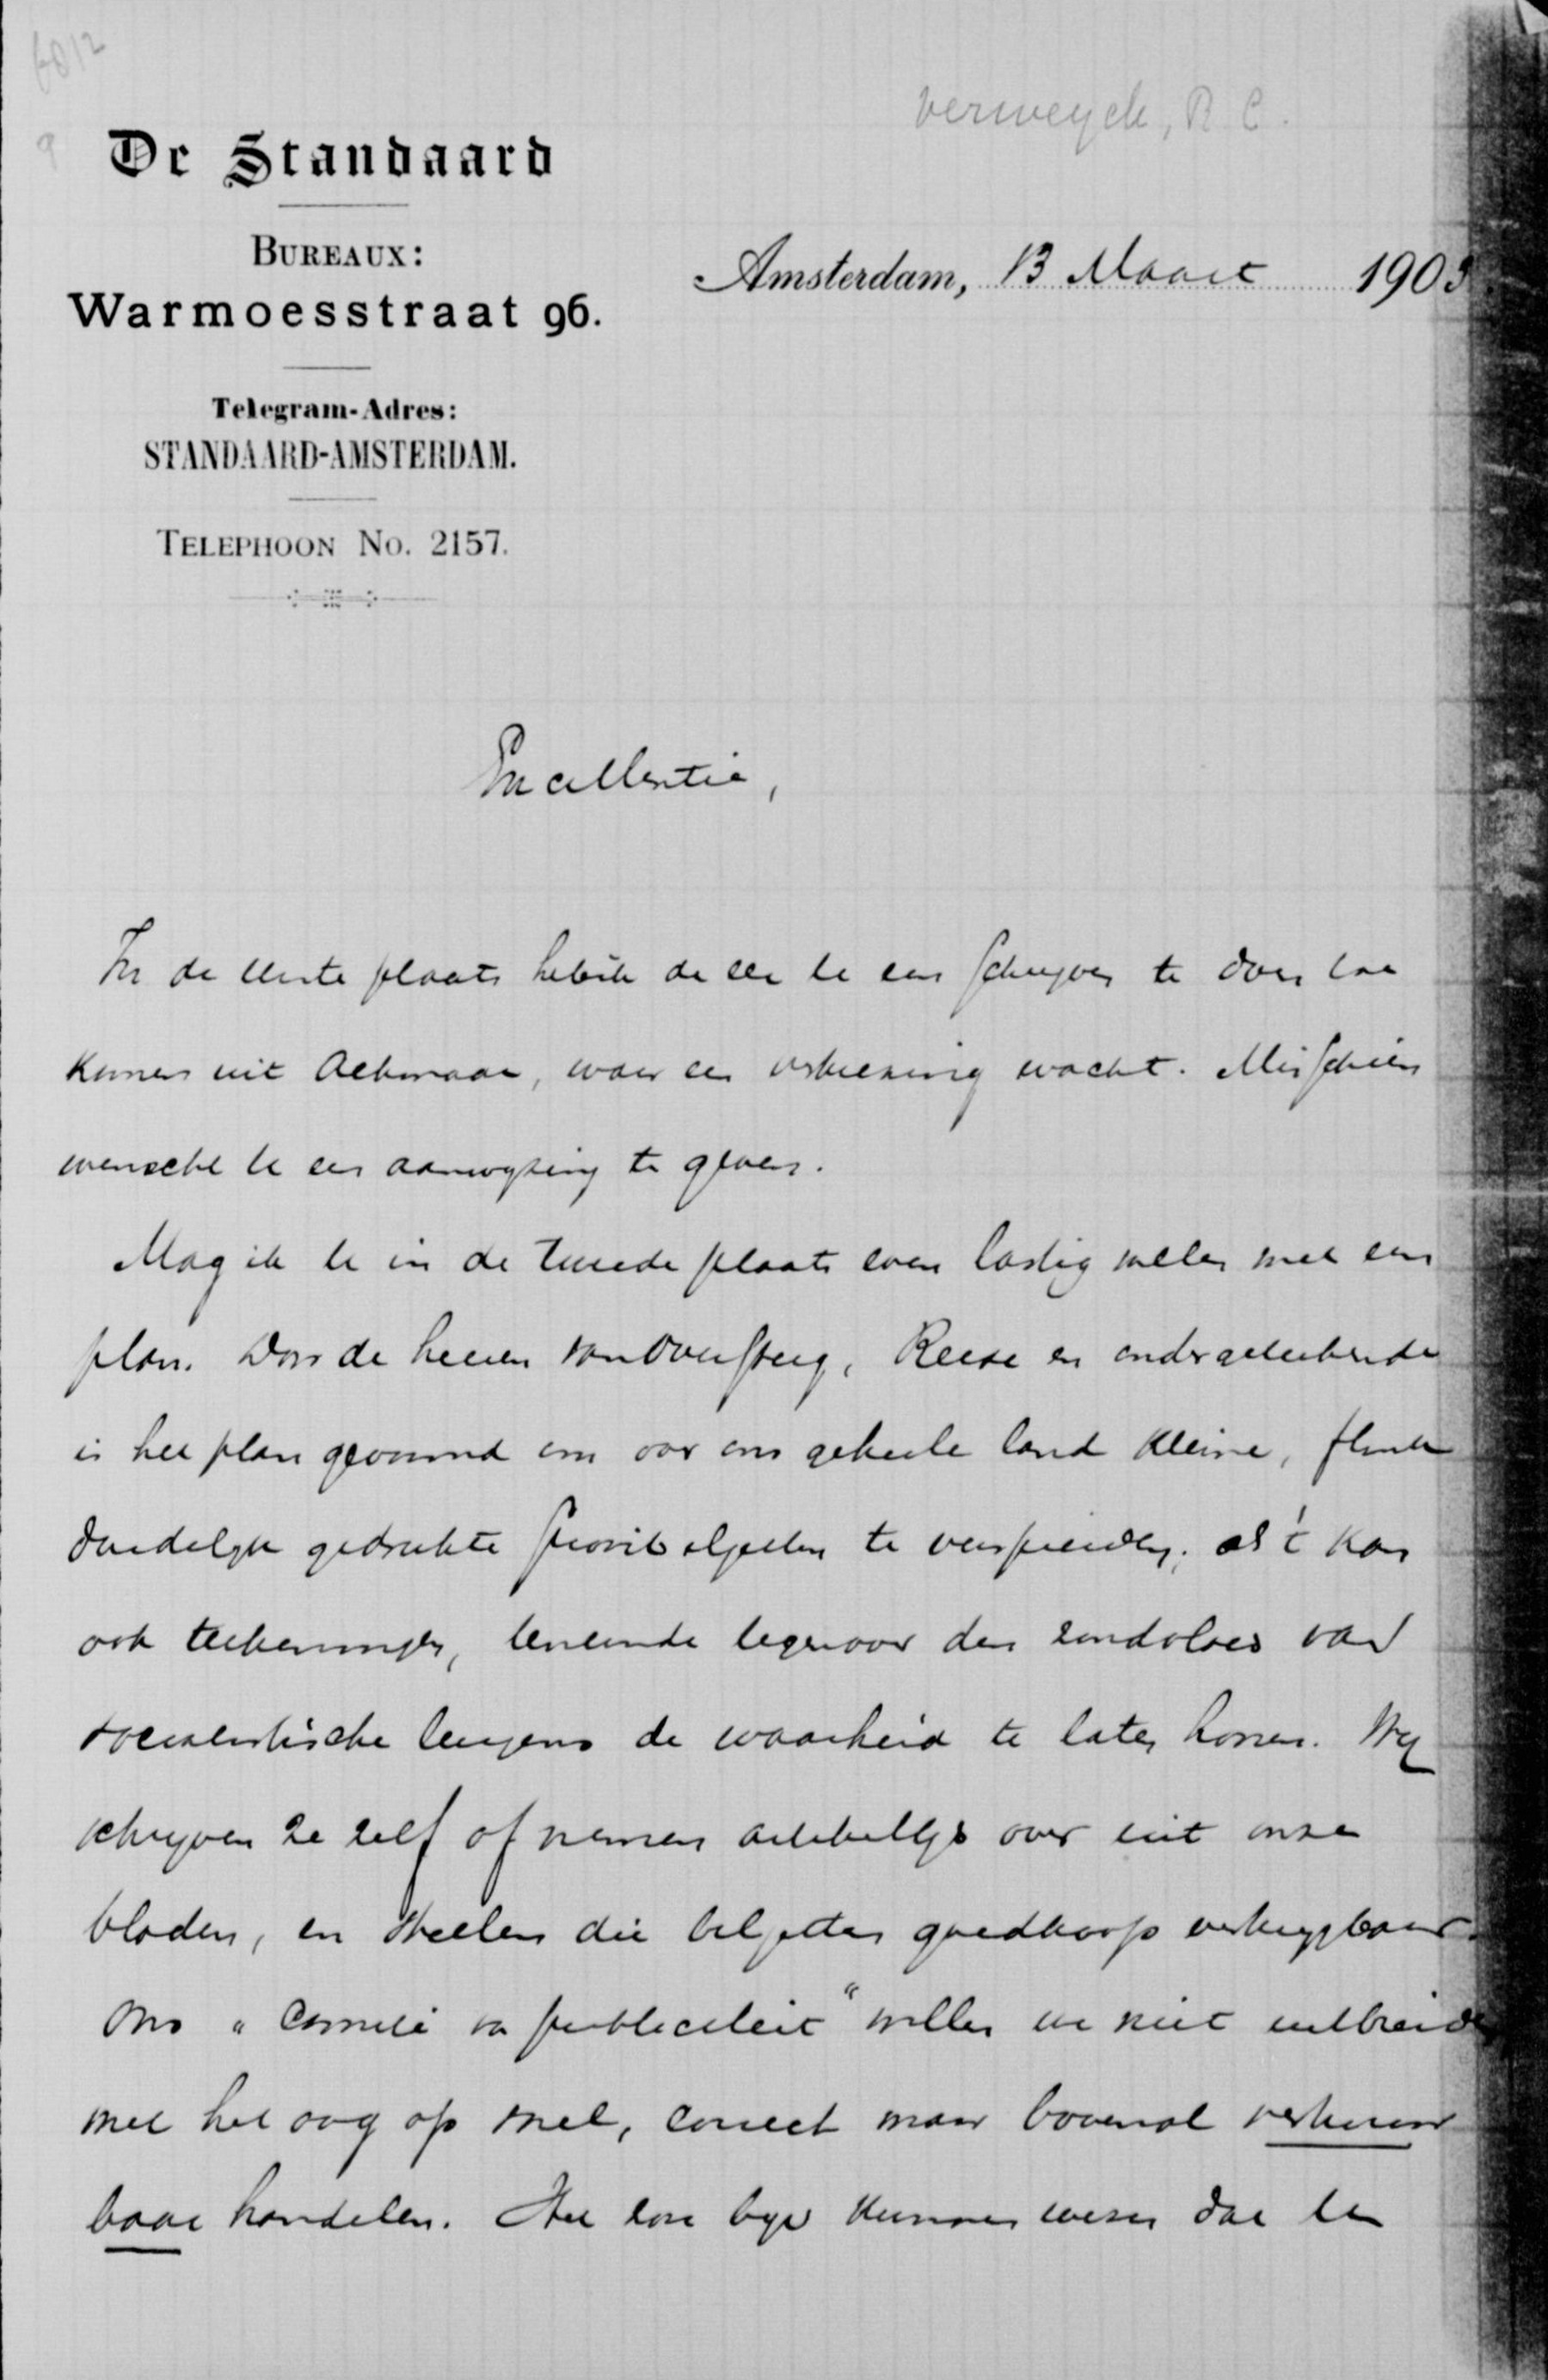 6012
9
Verweyck, R. C.
De Standaard
BUREAUX:
Warmoesstraat 96.
Telegram-Adres:
STANDAARD-AMSTERDAM.
TELEPHOON No. 2157.
Amsterdam, 13 Maart 1903
Excellentie,
In de eerste plaats heb ik de eer U een schrijven te doen toe
komen uit Alkmaar, waar een verkiezing wacht. Misschien
wenscht U een aanwyzing te geven.
Mag ik U in de tweede plaats even lastig vallen met een
plan. Door de heeren van Oversteeg, Reese en ondergeteekende
is het plan gevormd om over ons geheele land kleine, flink
duidelyk gedrukte strooibiljetten te verspreiden, als 't kan
ook teekeningen, teneinde tegenover den zondvloed van
socialistische leugens de waarheid te laten hooren. Wy
schryven ze zelf of nemen artikeltjes over uit onze
bladen, en stellen die biljetten goedkoop verkrygbaar.
Ons "Comité van publiciteit" willen we niet uitbreiden
met het oog op snel, correct maar bovenal verkoop
baar handelen. Het zou byv kunnen wezen dat U